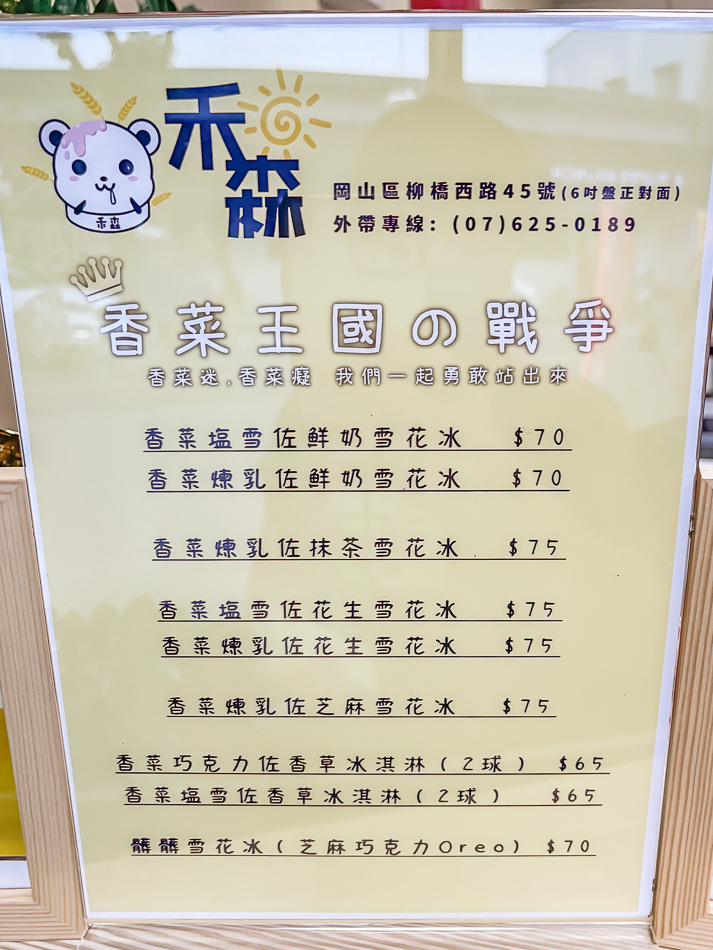 禾森
禾森
岡山區柳橋西路45號(6吋盤正對面)
外帶專線: (07)625-0189
香菜王國の戰爭
香菜迷,香菜癡 我們一起勇敢站出來
香菜塩雪佐鮮奶雪花冰 $70
香菜煉乳佐鮮奶雪花冰 $70
香菜煉乳佐抹茶雪花冰 $75
香菜塩雪佐花生雪花冰 $75
香菜煉乳佐花生雪花冰 $75
香菜煉乳佐芝麻雪花冰 $75
香菜巧克力佐香草冰淇淋(2球) $65
香菜塩雪佐香草冰淇淋(2球) $65
髒髒雪花冰(芝麻巧克力Oreo) $70